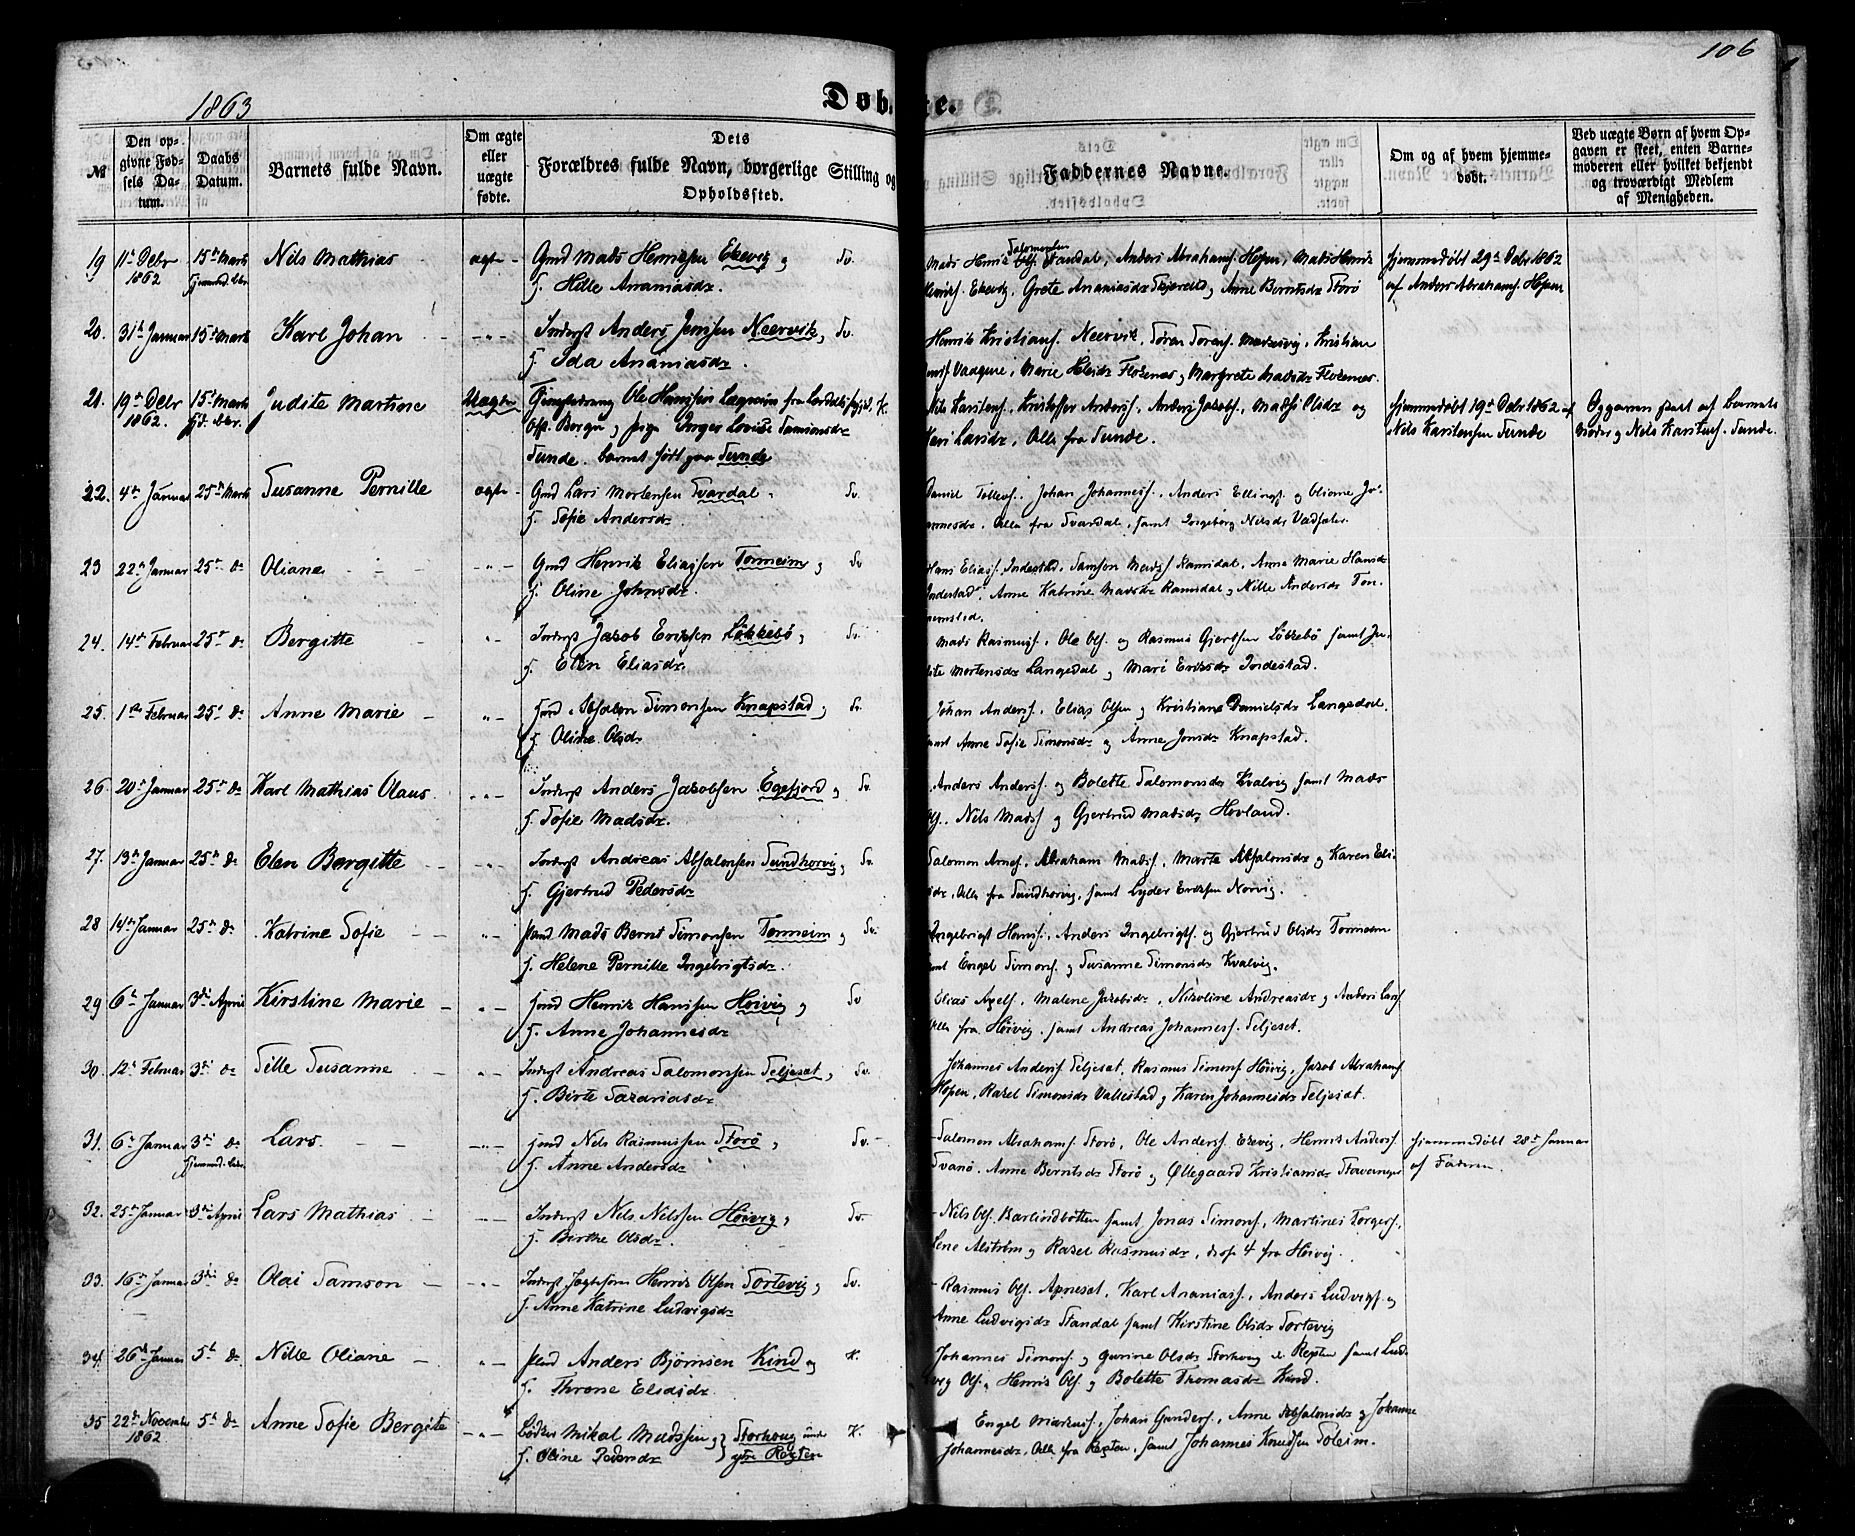 1863
Døbte.
106
No
Den opgivne Fødsels Datum.
Daabs Datum.
Barnets fulde Navn.
Om ægte eller uægte fødte.
Dets Forældres fulde Navn, borgerlige Stilling og Opholdssted.
Faddernes Navne.
Om og af hvem hjemmedøbt.
Ved uægte Børn af hvem Opgaven er skeet, enten Barnemoderen eller hvilket bekjendt og troværdigt Medlem af Menigheden.
19 11te Decbr 1862 15de Marts Nils Mathias ægte Gmd Mads Henriksen Ekevig og Sv.
H. Hille Ananiasdr.
Salomonsen
Mads Henrik Standal, Anders Abrahams. Hopen, Mads Henrik
Henriks. Ekevig, Grete Ananiasdr og Anne Berntsdr Storø
Hjemmedøbt 29de Decbr 1862
af Anders Abrahams. Hopen
20. 31te Januar 15de Marts Karl Johan Anders Jenssen Neervik, Sv.
H. Ida Ananiasdr.
Henrik Kristians. Neervik, Søren Sørens. Kristian
Marie og Margrete Madsdr Florenæs.
21. 19de Decbr 1862. 15de Marts Judite Martine Uægte Ole Hanssen fra K.
og pige Inger Lovise Samsonsdr
Sunde. barnet født paa Sunde
Nils Karstens., Kristoffer Anders., Anders Jakobs., Olsdr og
Larsdr, Alle fra Sunde.
Hjemmedøbt 19de Decbr 1862 af
Nils Karstensen Sunde
Opgaven skeet af barnets
Moder og Nils Karstens. Sunde.
22. 4de Januar 25de Marts Susanne Pernille ægte Gmd Lars Mortensen Svardal Sv.
H. Sofie Andersdr.
Daniel Tollevs., Johan Johanness., Anders Ellings. og Oliane Jo-
hannesdr. Alle fra Svardal, samt Ingeborg Nilsdr
23 22de Januar 25de do Oliane Gmd Henrik Eliassen Tonneim og Sv
H. Oline Johnsdr.
Hans Elias. Indestad, Samson Mads. Ramsdal, Anne Marie Hansdr
Indestad, Anne Katrine Madsdr Ramsdal og Nille Andersdr Ton-
24. 14de Februar 25de do Bergitte Jakob Eriksen Løkkebø, Sv.
H. Elen Eliasdr.
Mads Rasmus., Ole Ols. og Rasmus Gjertsen Løkkebø samt Ju-
dite Mortensdr Langedal og Mari Eriksdr Indestad.
25. 1ste Februar 25de do Anne Marie Absalon Simonsen Knapstad og Sv.
H. Oline Olsdr.
Johan Anders., Elias Olsen og Kristiane Danielsdr Langedal
samt Anne Sofie Simonsdr og Anne Jonsdr Knapstad.
26. 20de Januar 25de do Karl Mathias Olaus Anders Jakobsen Eggefjord og Sv.
H. Sofie Madsdr.
Anders Anders. og Bolette Salomonsdr Kvalvig samt Mads
Ols., Nils Mads. og Gjertrud Madsdr Hovland.
27. 13de Januar 25de do Elen Bergitte Andreas Absalonsen Sundhorvig, Sv.
H. Gjertrud Pedersdr
Salomon Arnes., Abraham Mads., Marte Absalonsdr og Karen Eli-
asdr, Alle fra Sundhorvig, samt Lyder Eriksen Norvig.
28 14de Januar 25de do Katrine Sofie Mads Bernt Simonsen Tonneim og Sv.
H. Helene Pernille Ingebrigtsdr.
Ingebrigt Hans., Anders Ingebrigts. og Gjertrud Olsdr
samt Engel Simons. og Susanne Simonsdr Kvalvig.
29 6te Januar 3die April Kirstine Marie Gmd Henrik Hanssen Høivig og Sv
H. Anne Johannesdr
Elias Axels., Malene Jakobsdr, Nikoline Andreasdr og Anders Lars.
Alle fra Høivig, samt Andreas Johannes. Seljeset.
30. 12te Februar 3die do Sille Susanne Andreas Salomonsen Seljeset, Sv.
H. Birte Sakariasdr.
Johannes Anders. Seljeset, Rasmus Simons. Høivig, Jakob Abrahams.
Hopen, Rakel Simonsdr Vallestad og Karen Johannesdr Seljeset.
31. 6te Januar 3die do Lars. Nils Rasmussen Storø, Sv.
H. Anne Andersdr
Salomon Abrahams. Storø, Ole Anders. Ekevig, Henrik Anders.
Svanø, Anne Berntsdr Storø og Øllegaard Kristiansdr Stavanger
Hjemmedøbt 28de Januar
af Faderen.
32. 25de Januar 3die April Lars Mathias Nils Nilssen Høivig, Sv.
H. Birthe Olsdr.
Nils Ols. Barlindbotten samt Jonas Simons., Martines Torgers.,
Lene Alstrøm og Rakel Rasmusdr, disse 4 fra Høivig.
33. 16de Januar 3die do Olai Samson Henrik Olsen Sortevig, Sv.
H. Anne Katrine Ludvigsdr
Rasmus Ols. Apneset, Karl Ananias., Anders Ludvigs. og
Anne Ludvigsdr Standal samt Kirstine Olsdr Sortevig
34. 26de Januar 5te do Nille Oliane Anders Bjørnsen Kind og K.
H. Throne Eliasdr.
Johannes Simons. og Gurine Olsdr Storhoug samt Lud-
vig Ols., Henrik Ols. og Bolette Thomasdr Kind.
35 22de November 1862 5te do Anne Sofie Bergite Mikal Madssen og Storhoug under K.
H. Oline Pedersdr ytre
Engel Markus., Johan Gunders., Anne Absalonsdr og Johanne
Johannesdr, Alle fra samt Johannes Knudsen Soleim.